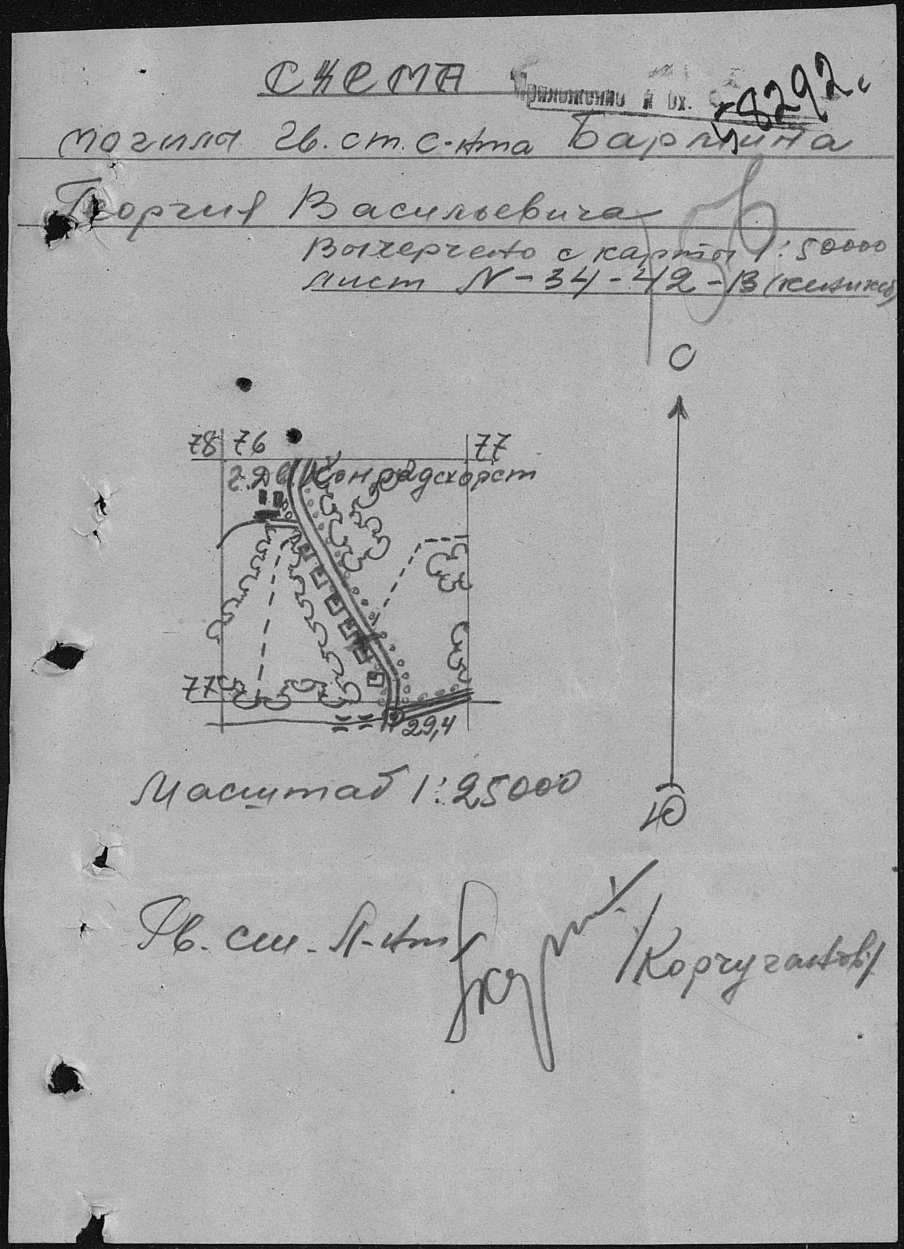 СХЕМА
Приложение к вх. 8292.
могилы гв. ст. с-нта Бармина
Георгия Васильевича
Вычерчено с карты 1:50000
лист N-34-42-В
С
78 76 77
г. Дв. Конрадсхорст
77
29,4
Масштаб 1:25000
Ю
Гв. ст. л-нт /Корчуганов/